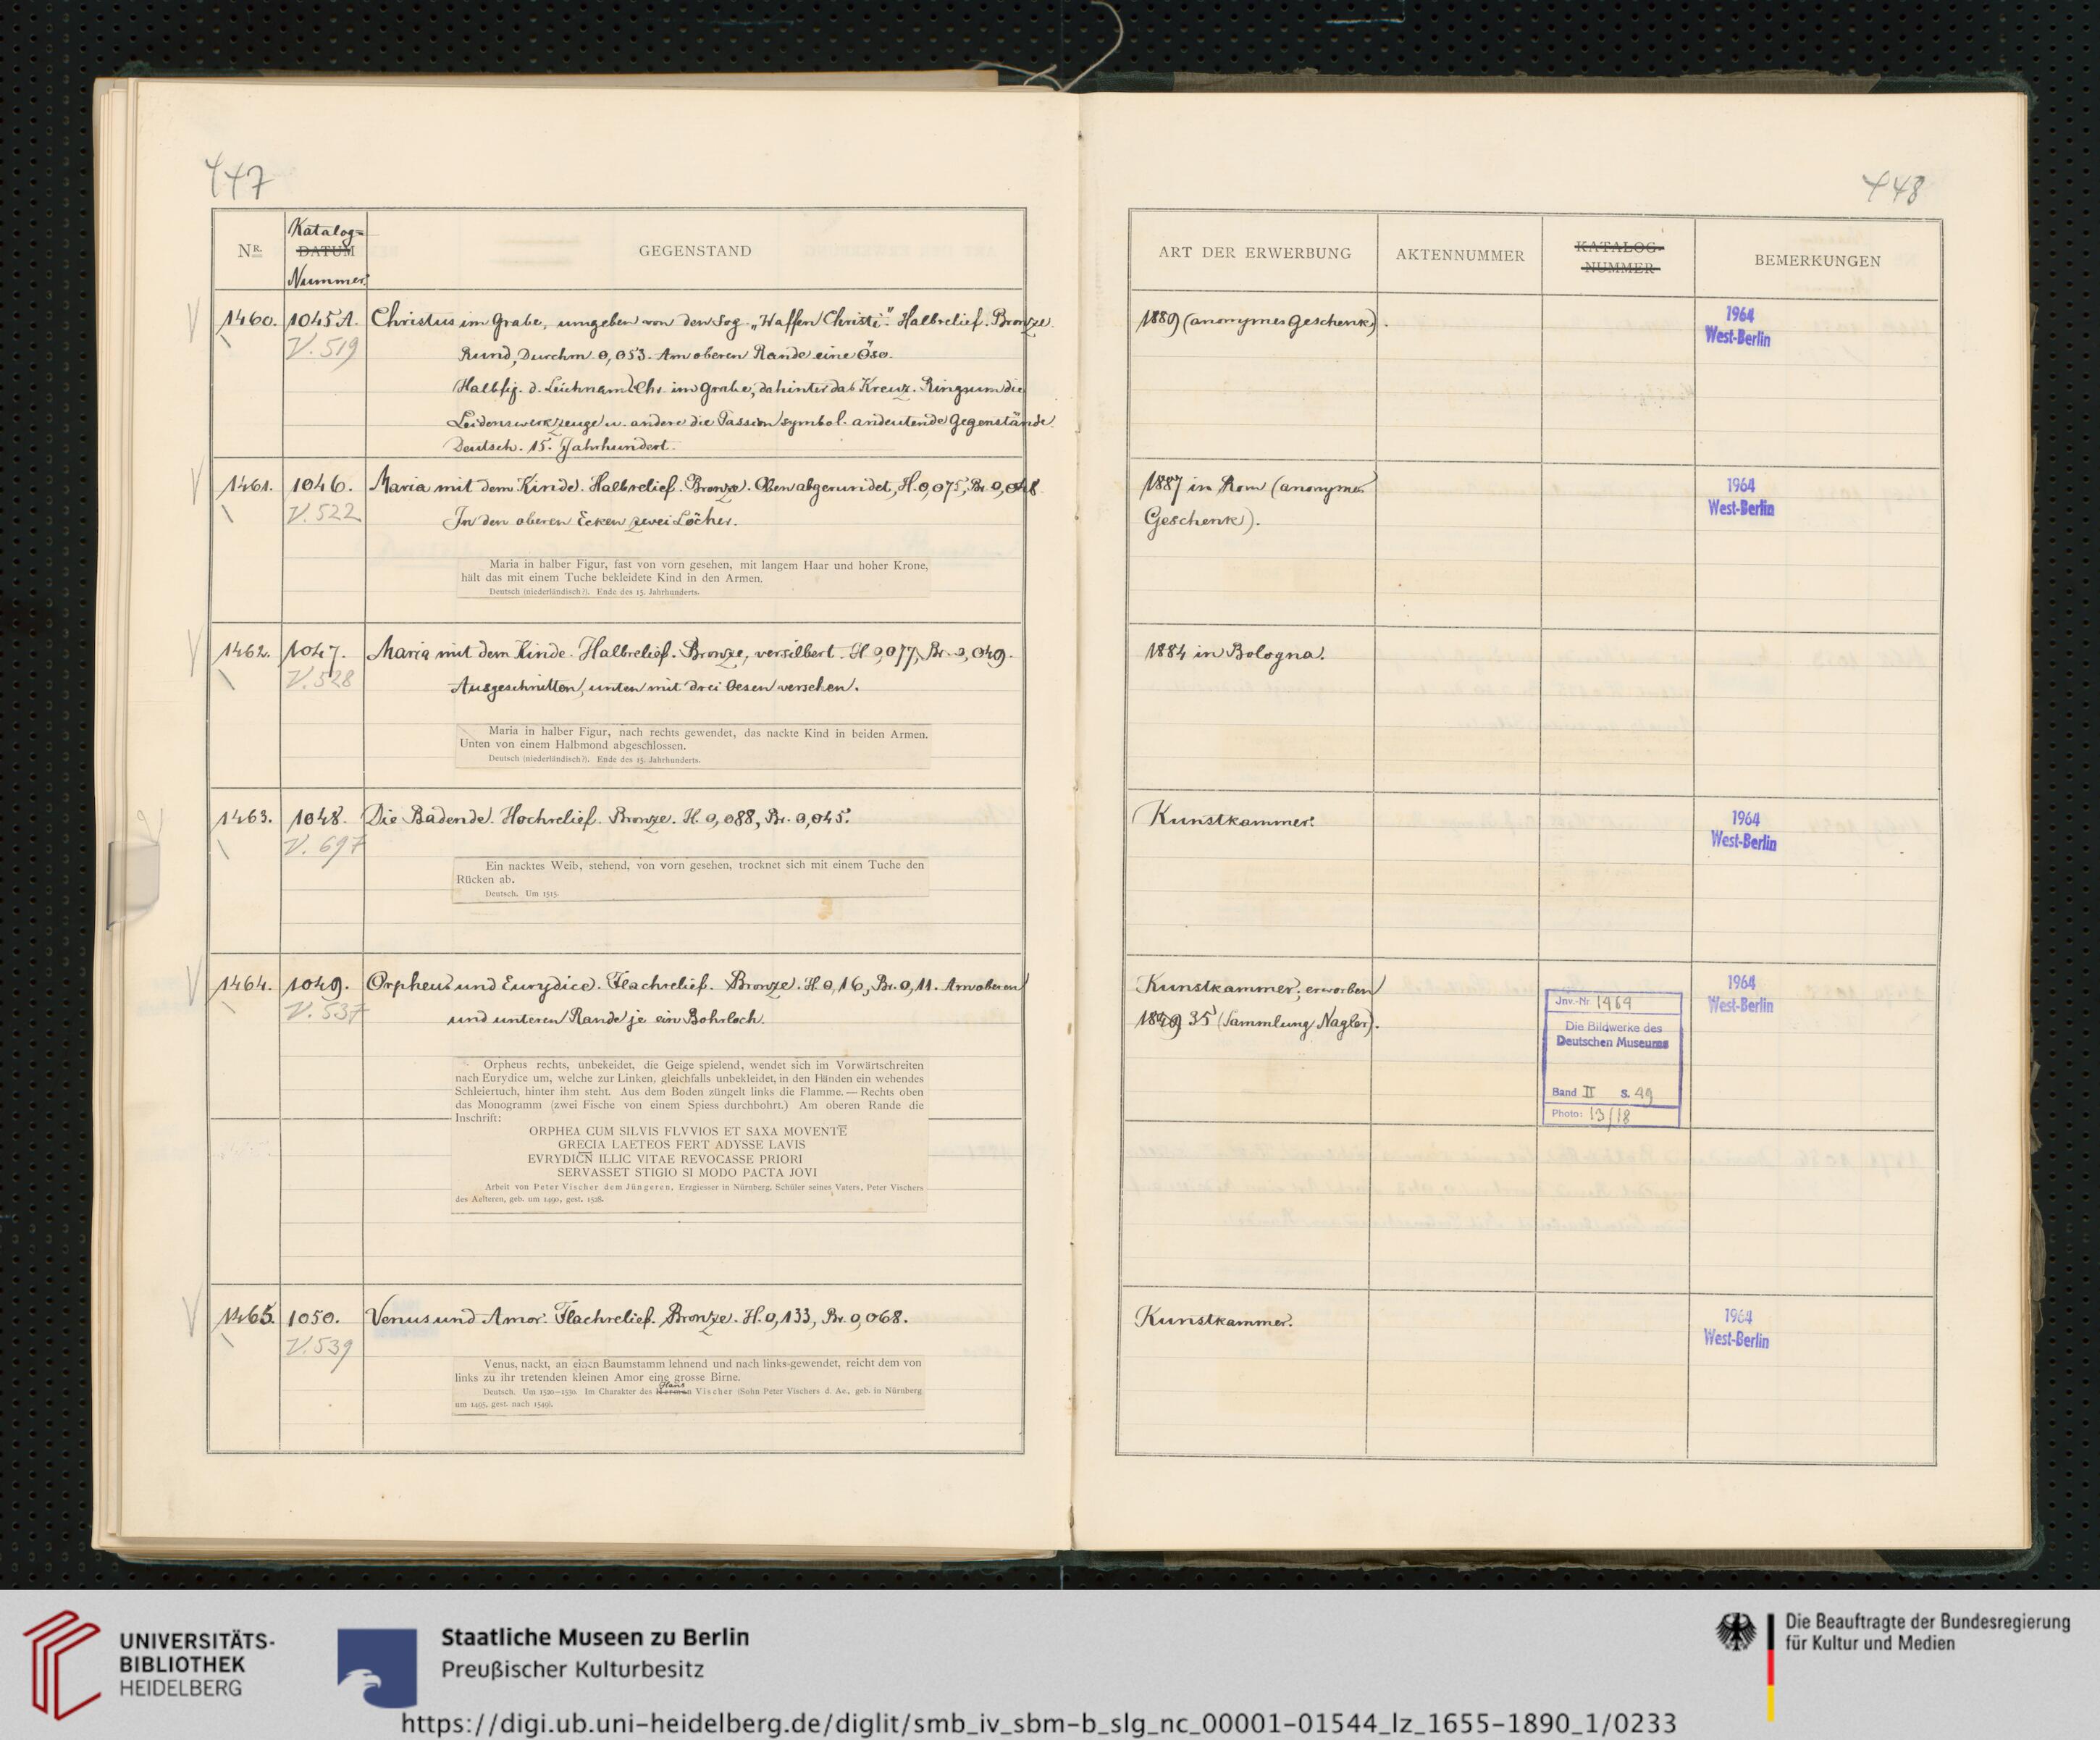 447
NR.
Katalog=
DATUM
Nummer.
GEGENSTAND
1460.
1045A.
V. 519
Christus im Grabe, umgeben von den sog. „Waffen Christi". Halbrelief. Bronze.
Rund, Durchm. 0,053. Am oberen Rande eine Öse.
Halbfig. d. Leichnams Chr. im Grabe, dahinter das Kreuz. Ringsum die
Leidenswerkzeuge u. andere die Passion symbol. andeutende Gegenstände.
Deutsch. 15. Jahrhundert.
1461.
1046.
V. 522
Maria mit dem Kinde. Halbrelief. Bronze. Oben abgerundet, H. 0,075, Br. 0,048.
In den oberen Ecken zwei Löcher.
Maria in halber Figur, fast von vorn gesehen, mit langem Haar und hoher Krone,
hält das mit einem Tuche bekleidete Kind in den Armen.
Deutsch (niederländisch?). Ende des 15. Jahrhunderts.
1462.
1047.
V. 528
Maria mit dem Kinde. Halbrelief. Bronze, versilbert. H. 0,077, Br. 0,049.
Ausgeschnitten, unten mit drei Oesen versehen.
Maria in halber Figur, nach rechts gewendet, das nackte Kind in beiden Armen.
Unten von einem Halbmond abgeschlossen.
Deutsch (niederländisch?). Ende des 15. Jahrhunderts.
1463.
1048.
V. 697
Die Badende. Hochrelief. Bronze. H. 0,088, Br. 0,045.
Ein nacktes Weib, stehend, von vorn gesehen, trocknet sich mit einem Tuche den
Rücken ab.
Deutsch. Um 1515.
1464.
1049.
V. 537
Orpheus und Eurydice. Flachrelief. Bronze. H. 0,16, Br. 0,11. Am oberen
und unteren Rande je ein Bohrloch.
Orpheus rechts, unbekeidet, die Geige spielend, wendet sich im Vorwärtschreiten
nach Eurydice um, welche zur Linken, gleichfalls unbekleidet, in den Händen ein wehendes
Schleiertuch, hinter ihm steht. Aus dem Boden züngelt links die Flamme. — Rechts oben
das Monogramm (zwei Fische von einem Spiess durchbohrt.) Am oberen Rande die
Inschrift:
ORPHEA CUM SILVIS FLVVIOS ET SAXA MOVENTĒ
GRECIA LAETEOS FERT ADYSSE LAVIS
EVRYDIC̄N̄ ILLIC VITAE REVOCASSE PRIORI
SERVASSET STIGIO SI MODO PACTA JOVI
Arbeit von Peter Vischer dem Jüngeren, Erzgiesser in Nürnberg. Schüler seines Vaters, Peter Vischers
des Aelteren, geb. um 1490, gest. 1528.
1465.
1050.
V. 539
Venus und Amor. Flachrelief. Bronze. H. 0,133, Br. 0,068.
Venus, nackt, an einen Baumstamm lehnend und nach links gewendet, reicht dem von
links zu ihr tretenden kleinen Amor eine grosse Birne.
Hans
Deutsch. Um 1520—1530. Im Charakter des Herman Vischer (Sohn Peter Vischers d. Ae., geb. in Nürnberg
um 1495, gest. nach 1549).
448
ART DER ERWERBUNG
AKTENNUMMER
KATALOG-
NUMMER
BEMERKUNGEN
1889 (anonymes Geschenk).
1964
West-Berlin
1887 in Rom (anonymes
Geschenk).
1964
West-Berlin
1884 in Bologna.
Kunstkammer.
1964
West-Berlin
Kunstkammer; erworben
1835 (Sammlung Nagler).
Jnv.-Nr. 1464
Die Bildwerke des
Deutschen Museums
Band II S. 49
Photo: 13/18
1964
West-Berlin
Kunstkammer.
1964
West-Berlin
UNIVERSITÄTS-
BIBLIOTHEK
HEIDELBERG
Staatliche Museen zu Berlin
Preußischer Kulturbesitz
Die Beauftragte der Bundesregierung
für Kultur und Medien
https://digi.ub.uni-heidelberg.de/diglit/smb_iv_sbm-b_slg_nc_00001-01544_lz_1655-1890_1/0233